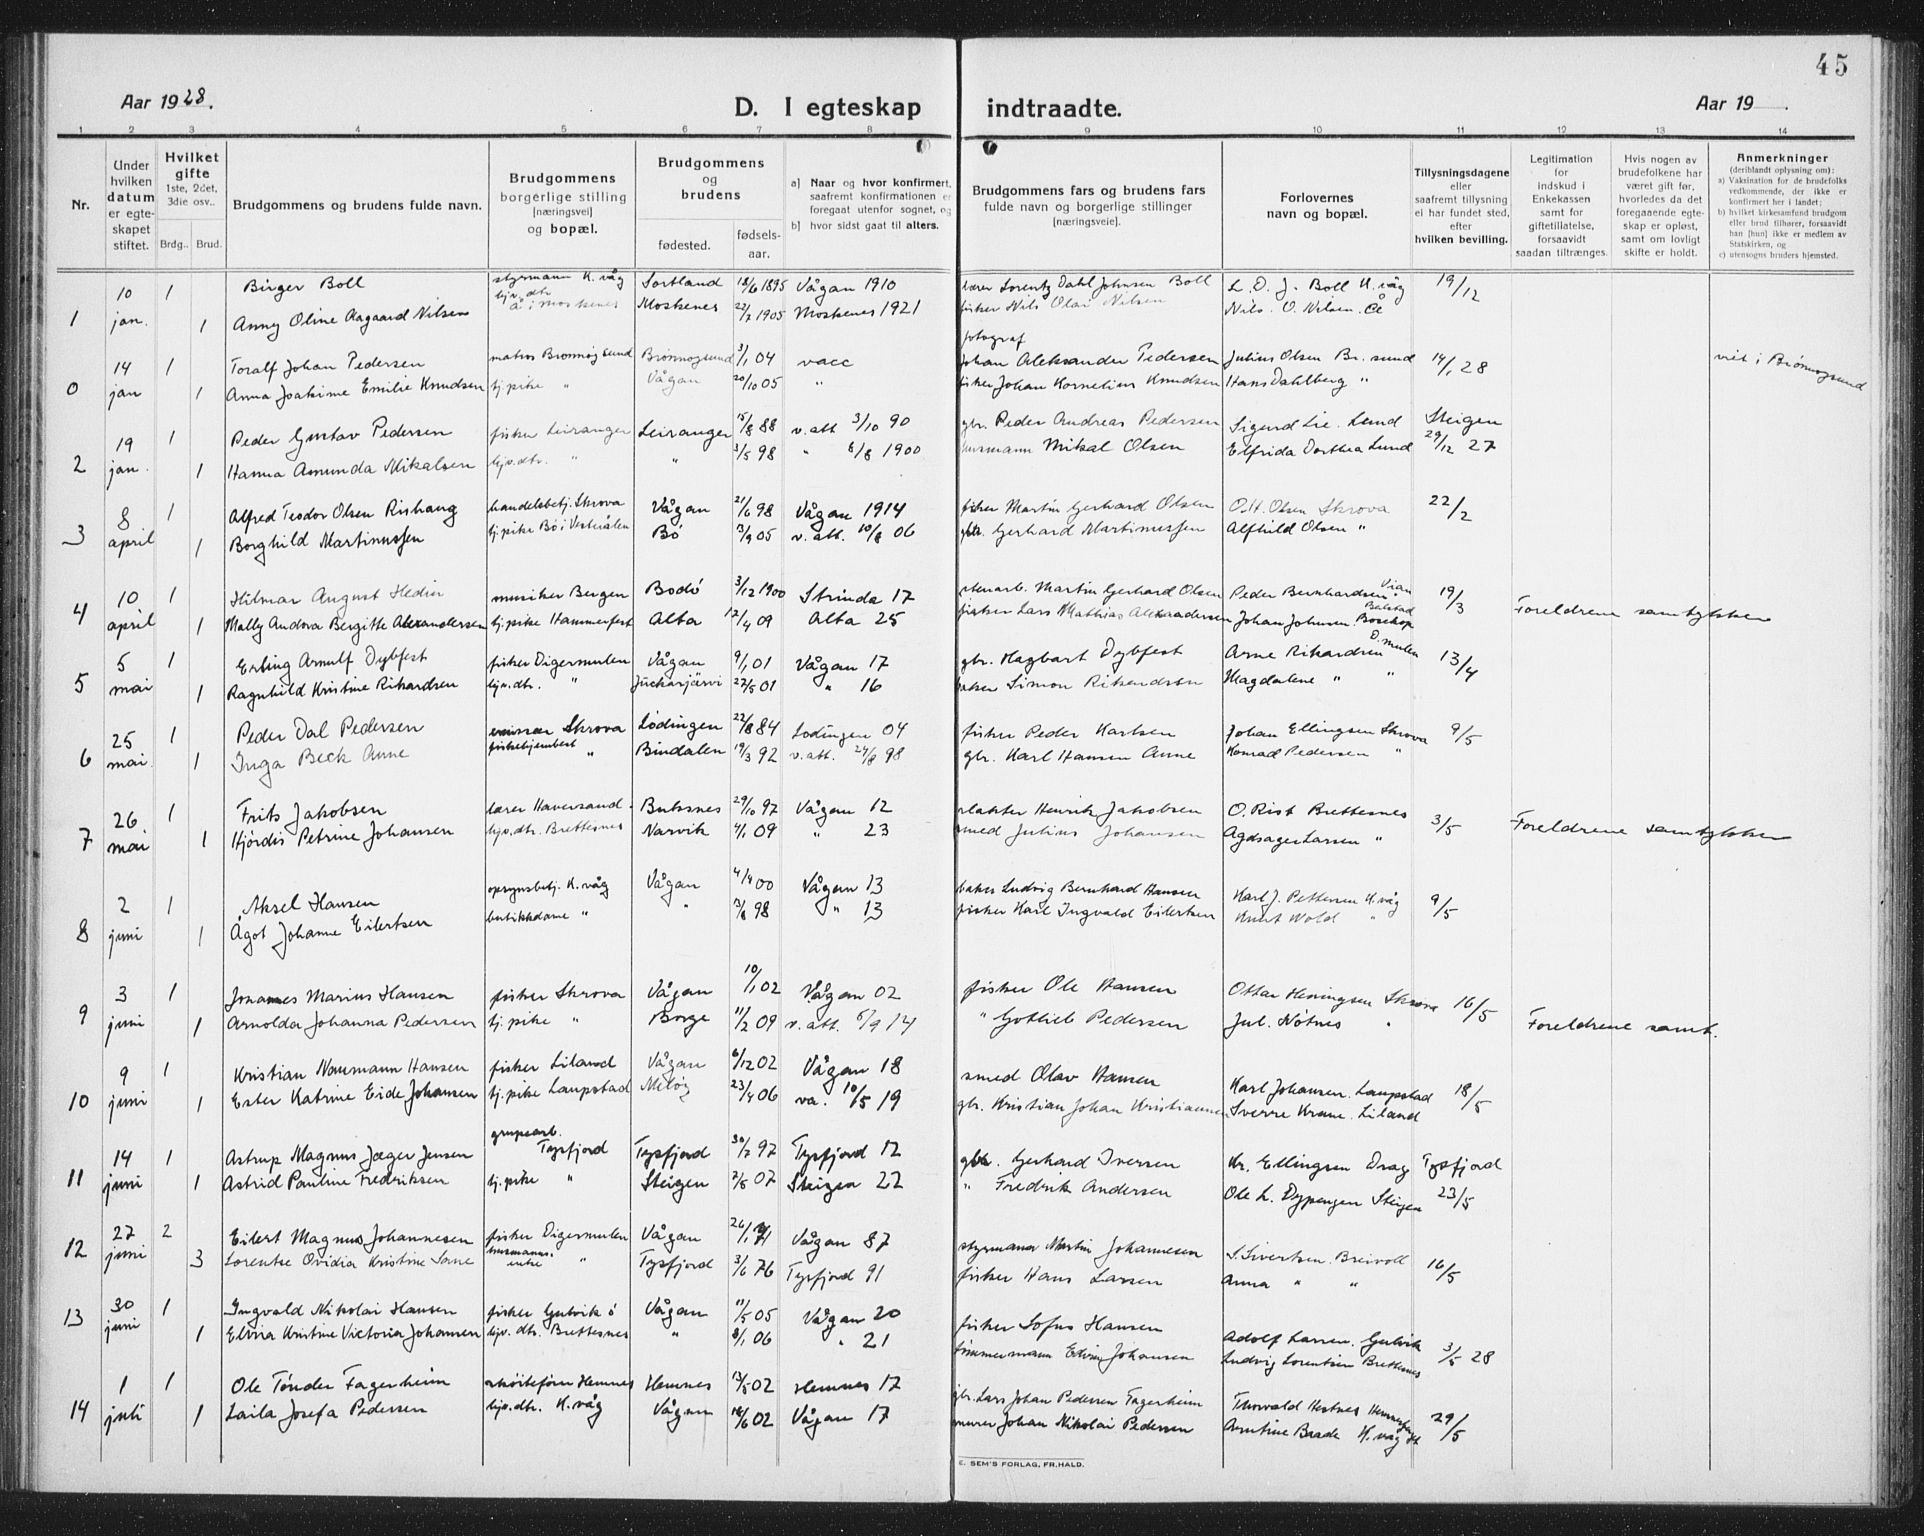 45
Aar 1928.
D. I egteskap indtraadte.
Aar 19 .
1 2 3 4 5 6 7 8 9 10 11 12 13 14
Nr.
Under hvilken datum er egte-skapet stiftet.
Hvilket gifte 1ste, 2det, 3die osv..
Brdg.. Brud.
Brudgommens og brudens fulde navn.
Brudgommens borgerlige stilling (næringsvei) og bopæl.
Brudgommens og brudens
fødested.
fødsels-aar.
a) Naar og hvor konfirmert, saafremt konfirmationen er foregaat utenfor sognet, og
b) hvor sidst gaat til alters.
Brudgommens fars og brudens fars fulde navn og borgerlige stillinger (næringsveie).
Forlovernes navn og bopæl.
Tillysningsdagene eller saafremt tillysning ei har fundet sted, efter hvilken bevilling.
Legitimation for indskud i Enkekassen samt for giftetillatelse, forsaavidt saadan tiltrænges.
Hvis nogen av brudefolkene har været gift før, hvorledes da det foregaaende egte-skap er opløst, samt om lovligt skifte er holdt.
Anmerkninger (deriblandt oplysning om):
a) Vaksination for de brudefolks vedkommende, der ikke er konfirmert her i landet;
b) hvilket kirkesamfund brudgom eller brud tilhører, forsaavidt han [hun] ikke er medlem av Statskirken, og
c) utensogns bruders hjemsted.
10 1 Birger Boll styrmann K. våg Sortland 18/6 1895 Vågan 1910 lærer Lorentz Dahl Johnsen Boll L. D. J. Boll K. våg 19/12
1 jan. 1 Anny Oline Aagaard Nilsen hjv. dtr. Å i Moskenes Moskenes 22/7 1905 Moskenes 1921 fisker Nils Olai Nilsen Nils. O. Nilsen. Å
14 1 Toralf Johan Pedersen matros Brønnøysund Brønnøysund 3/1 04 vacc fotograf Johan Aleksander Pedersen Julius Olsen Br. sund 14/1 28 viet i Brønnøysund
0 jan 1 Anna Joakime Emilie Knudsen tj. pike " Vågan 20/10 05 " fisker Johan Kornelius Knudsen Hans Dahlberg "
19 1 Peder Gustav Pedersen fisker Leiranger Leiranger 15/8 88 v. att 3/10 90 gbr. Peder Andreas Pedersen Sigurd Lie. Lund Steigen
2 jan. 1 Hanna Amunda Mikalsen hjv. dtr. " " 3/5 98 " 6/8 1900 husmann Mikal Olsen Elfrida Dorthea Lund 29/12 27
8 1 Alfred Teodor Olsen Rishaug handelsbetj. Skrova Vågan 21/6 98 Vågan 1914 fisker Martin Gerhard Olsen O. H. Olsen Skrova 22/2
3 april 1 Borghild Martinussen tj. pike Bø i Vesterålen Bø 3/9 05 v. att. 10/8 06 gbr. Gerhard Martinussen Alfhild Olsen "
10 1 Hilmar August Hedin musiker Bergen Bodø 3/12 1900 Strinda 17 stenarb. Martin Gerhard Olsen Peder Bernhardsen Balstad 19/3 Foreldrene samtykker
4 april 1 Mally Andova Bergitte Alexandersen tj. pike Hammerfest Alta 12/4 09 Alta 25 fisker Lars Mathias Alexandersen Johan Johnsen. Bosekop
5 1 Erling Arnulf Dybfest fisker Digermulen Vågan 9/1 01 Vågan 17 gbr. Hagbart Dybfest Arne Rikardsen D. mulen 13/4
5 mai 1 Ragnhild Kristine Rikardsen hjv. dtr. " Juckasjärvi 27/5 01 " 16 fisker Simon Rikardsen Magdalene " "
25 1 Peder Dal Pedersen Skrova Lødingen 22/8 84 Lødingen 04 fisker Peder Karlsen Johan Ellingsen Skrova 9/5
6 mai. 1 Inga Beck Anne " Bindalen 19/3 92 v. att. 24/8 98 gbr. Karl Hansen Anne Konrad Pedersen "
26 1 Frits Jakobsen lærer Haversand Buksnes 29/10 97 Vågan 12 slakter Henrik Jakobsen O. Rist Brettesnes 3/5 Foreldrene samtykker
7 mai 1 Hjørdis Petrine Johansen hjv. dtr. Brettesnes Narvik 4/1 09 " 23 smed Julius Johansen Larsen "
2 1 Aksel Hansen opsynsbetj. K. våg Vågan 4/4 00 Vågan 13 baker Ludvig Bernhard Hansen Karl J. Pettersen K. våg 9/5
8 juni 1 Ågot Johanne Eilertsen butikkdame " " 3/8 98 " 13 fisker Karl Ingvald Eilertsen Knut Wold "
3 1 Johannes Marius Hansen fisker Skrova Vågan 10/1 02 Vågan 02 fisker Ole Hansen Ottar Heningsen Skrova 16/5
9 juni 1 Arnolda Johanna Pedersen tj. pike " Borge 11/2 09 v. att. 6/9 14 " Gotlieb Pedersen Jul. Nøtnes " Foreldrene samt.
9 1 Kristian Naumann Hansen fisker Liland Vågan 6/12 02 Vågan 18 smed Olav Hansen Karl Johansen. Laupstad 18/5
10 juni 1 Ester Katrine Eide Johansen tj. pike Laupstad Meløy 23/4 06 va. 10/5 19 gbr. Kristian Johan Kristiansen Sverre Krane. Liland
14 1 Astrup Magnus Jæger Jensen grupearb. Tysfjord Tysfjord 30/7 97 Tysfjord 12 gbr. Gerhard Iversen Kr. Ellingsen Drag Tysfjord
11 juni 1 Astrid Pauline Fredriksen tj. pike " Steigen 2/5 07 Steigen 22 " Fredrik Andersen Ole L. Dypengen Steigen 23/5
27 2 Eilert Magnus Johannesen fisker Digermulen Vågan 26/1 71 Vågan 87 styrmann Martin Johannesen S. Sivertsen. Breivoll 16/5
12 juni 3 Lorentse Ovidia Kristine Sane husmanns enke " Tysfjord 3/6 76 Tysfjord 91 fisker Hans Larsen Anna " "
30 1 Ingvald Nikolai Hansen fisker Gulvik Vågan 11/5 05 Vågan 20 fisker Sofus Hansen Adolf Larsen. Gulvik 3/5 28
13 juni 1 Elvia Kristine Victoria Johansen hjv. dtr. Brettesnes " 8/1 06 " 21 tømmermann Johansen Ludvig Lorentsen Brettesnes
1 1 Ole Tønder Fagerheim skøitefører Hemnes Hemnes 13/5 02 Hemnes 17 gbr. Lars Johan Pedersen Fagerheim Thorvald Hestnes 29/5
14 juli 1 Laila Josefa Pedersen hjv. dtr. K. våg Vågan 16/6 02 Vågan 17 murer Johan Nikolai Pedersen Arntine Baade K. våg
E. SEM'S FORLAG, FR.HALD.